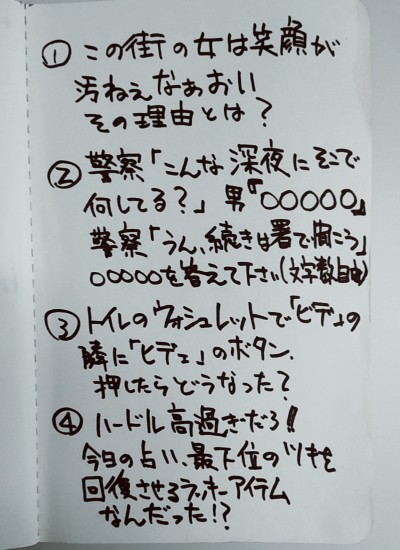 ① この街の女は笑顔が
汚ねえなぁおい
その理由とは？
② 警察「こんな深夜にそこで
何してる？」 男「○○○○○」
警察「うん、続きは署で聞こう」
○○○○○を答えて下さい(文字数自由)
③ トイレのウォシュレットで「ビデ」の
隣に「ヒデェ」のボタン、
押したらどうなった？
④ ハードル高過ぎだろ！
今日の占い、最下位のツキを
回復させるラッキーアイテム
なんだった!？